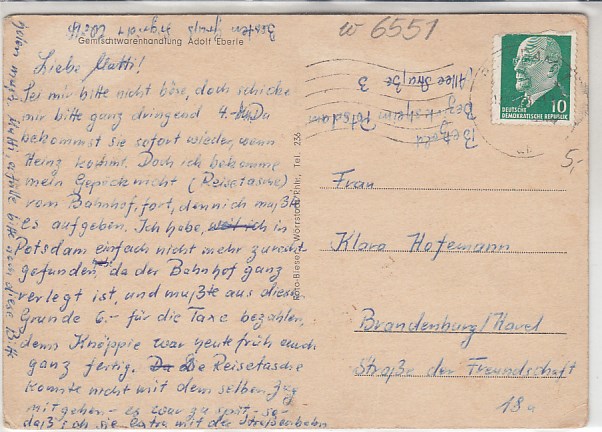 w 6551
Gemischtwarenhandlung Adolf Eberle
Liebe Mutti!
Sei mir bitte nicht böse, doch schicke
mir bitte ganz dringend 4.- Du
bekommst sie sofort wieder, wenn
Heinz kommt. Doch ich bekomme
mein Gepäck nicht (Reisetasche)
vom Bahnhof fort, denn ich mußte
es aufgeben. Ich habe, weil ich in
Potsdam einfach nicht mehr zurecht
gefunden, da der Bahnhof ganz
verlegt ist, und mußte aus diesem
Grunde 6.- für die Taxe bezahlen,
denn Knöppie war heute früh auch
ganz fertig. Da Die Reisetasche
konnte nicht mit dem selben Zug
mitgehen - es war zu spät, so-
daß ich sie extra mit der Straßenbahn
holen muß. Mutti, erfülle bitte noch diese Bitte
Besten Gruß
Bezirksheim Potsdam
Allee Straße 3
Foto-Biese, Wörrstadt/Rhh., Tel. 236
DEUTSCHE
DEMOKRATISCHE REPUBLIK
10
5,-
Frau
Klara Hofemann
Brandenburg/Havel
Straße der Freundschaft
18a